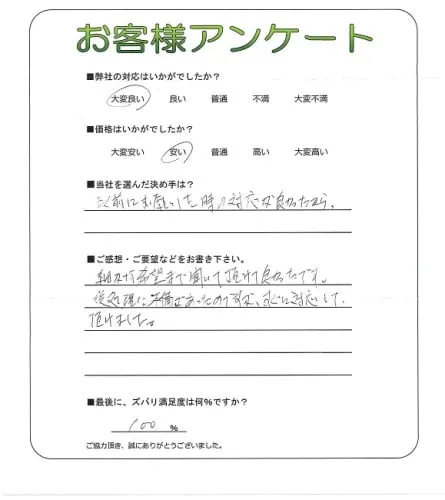 お客様アンケート
■弊社の対応はいかがでしたか？
大変良い 良い 普通 不満 大変不満
■価格はいかがでしたか？
大変安い 安い 普通 高い 大変高い
■当社を選んだ決め手は？
以前にお願いした時の対応が良かったから。
■ご感想・ご要望などをお書き下さい。
細かな希望まで聞いて頂けて良かったです。
後処理に不備があったのですが、すぐに対応して
頂けました。
■最後に、ズバリ満足度は何％ですか？
100 %
ご協力頂き、誠にありがとうございました。